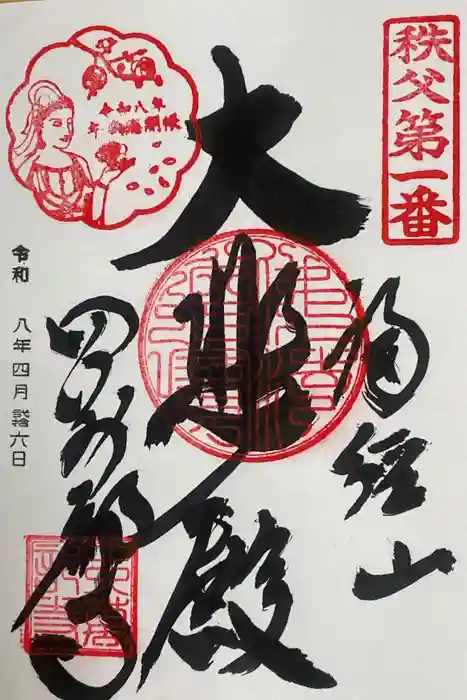 秩父第一番
誦経山
大悲殿
四萬部寺
令和八年
午歳総開帳
令和 八年四月 六日